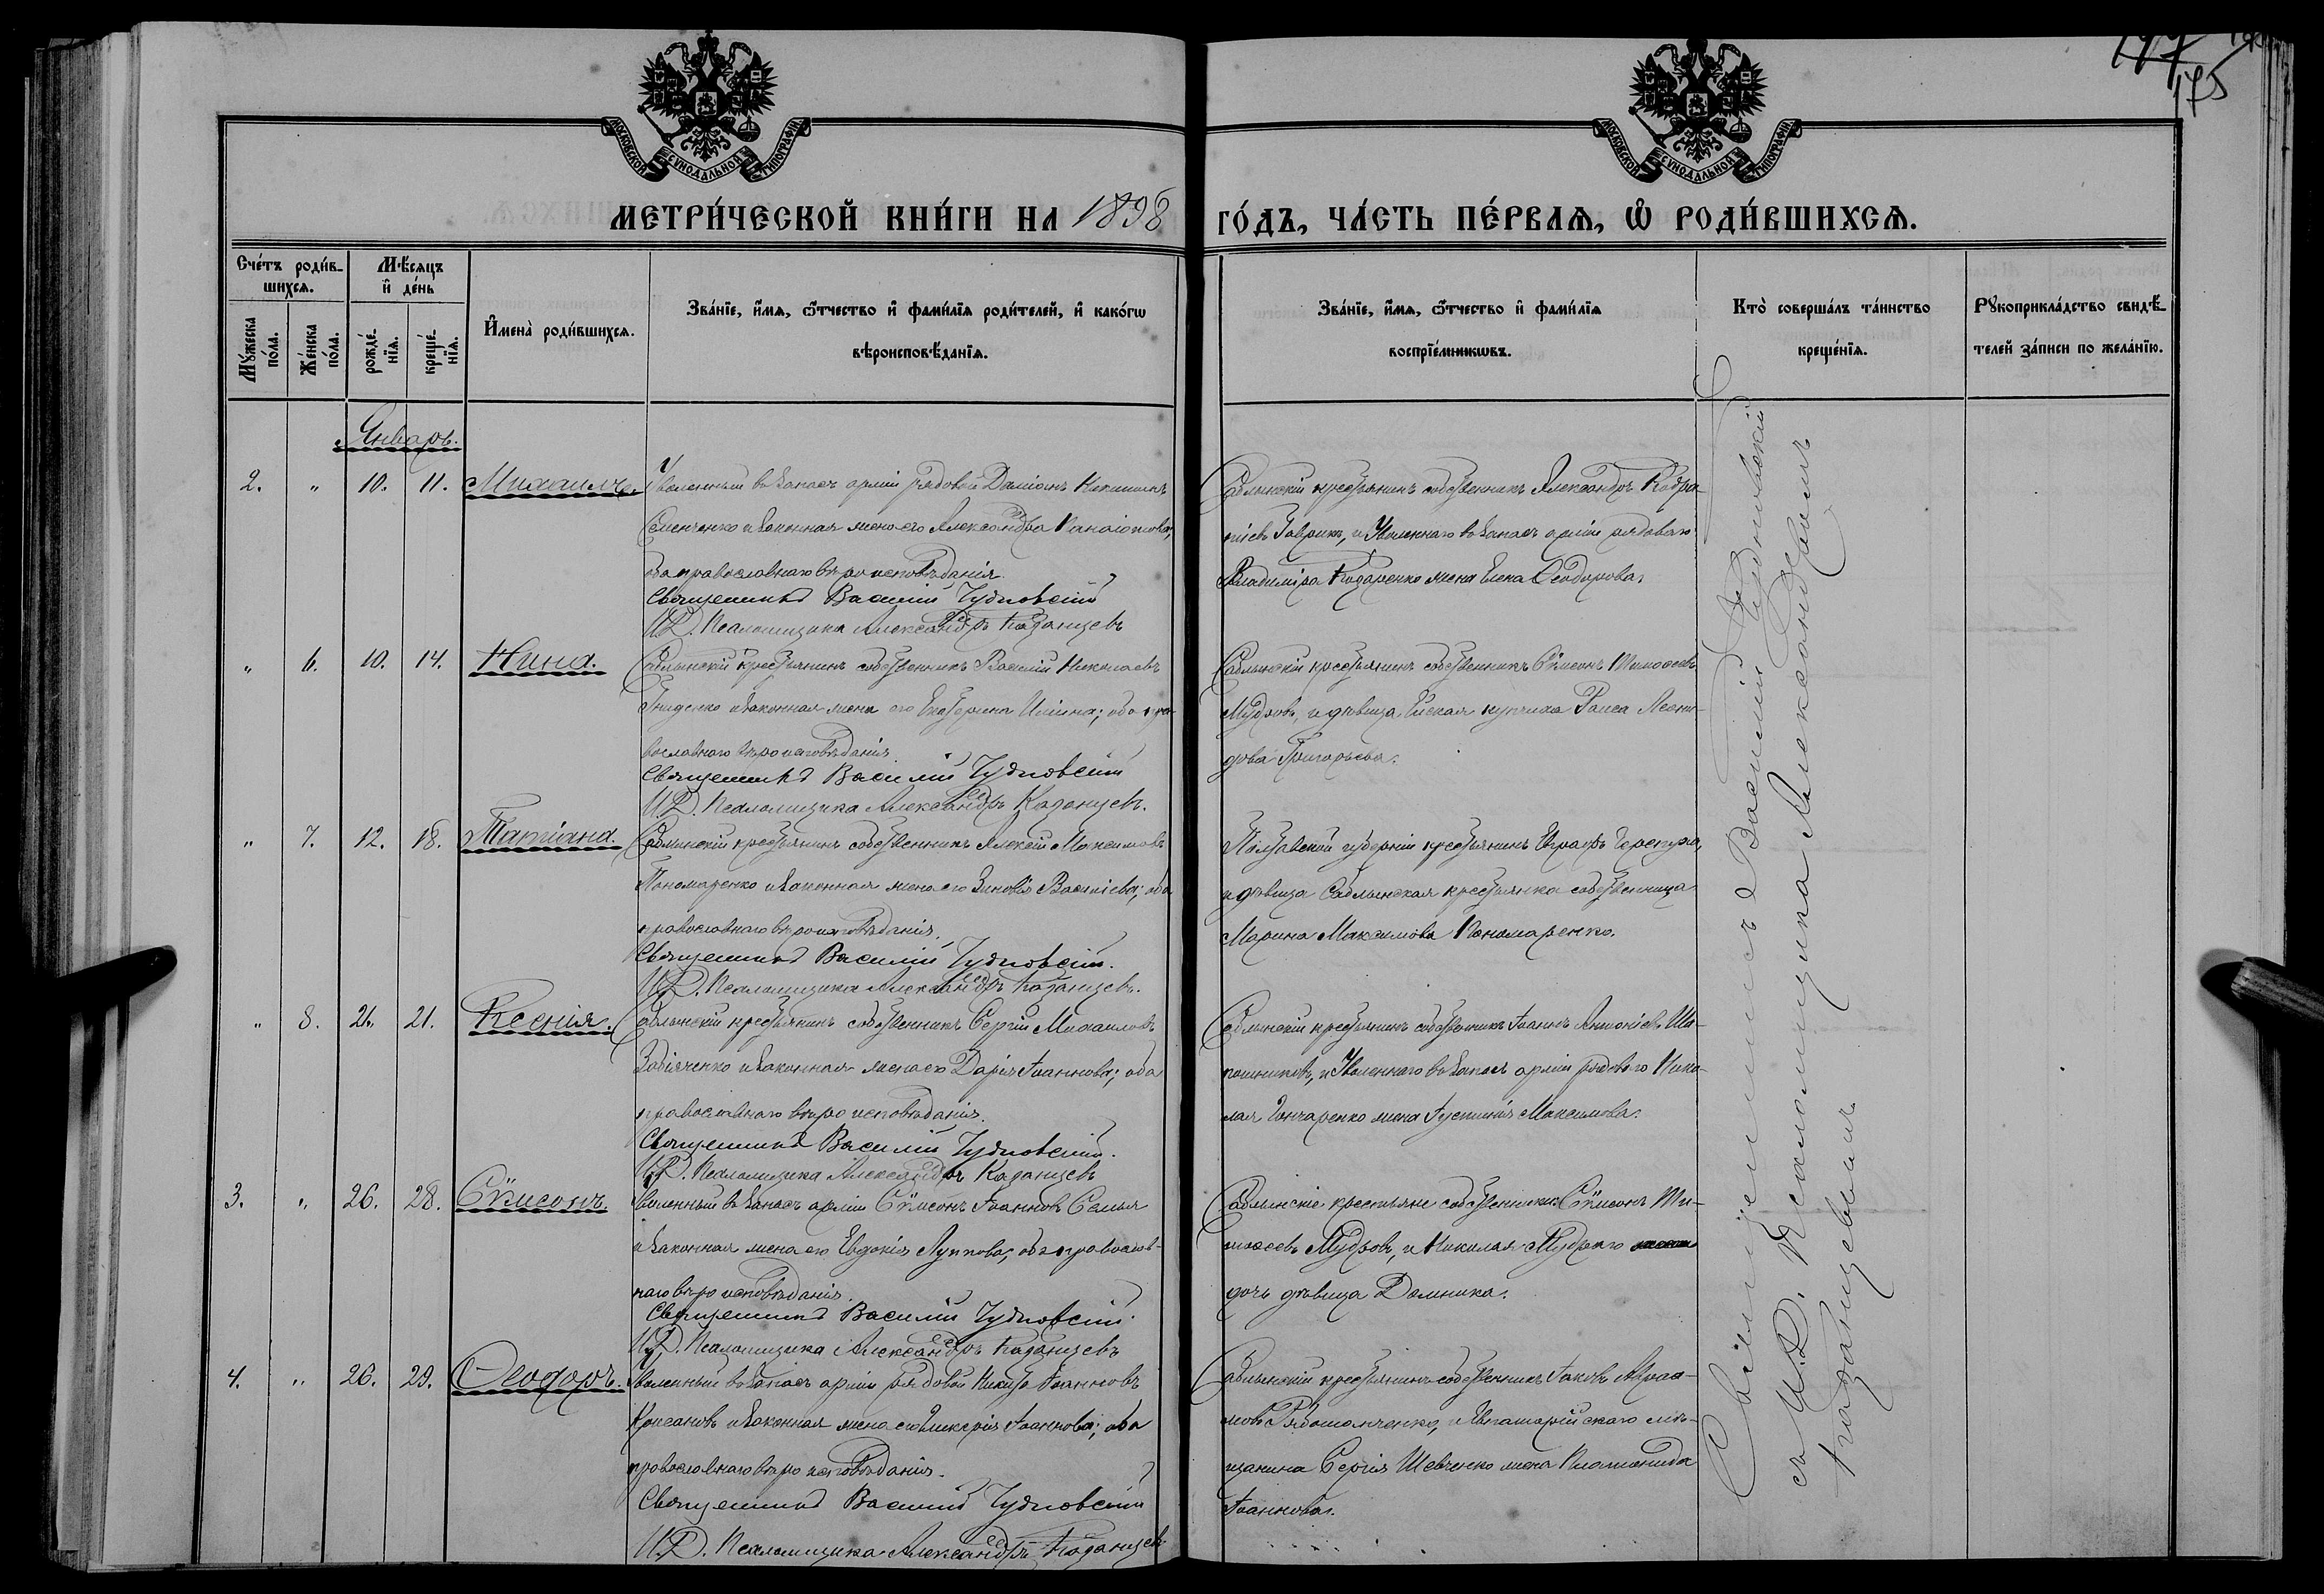 177
175
МОСКОВСКОЙ СѴНОДАЛЬНОЙ ТИПОГРАФІИ
МОСКОВСКОЙ СѴНОДАЛЬНОЙ ТИПОГРАФІИ
МЕТРИ́ЧЕСКОЙ КНИ́ГИ НА 1898
ГО́ДЪ, ЧА́СТЬ ПЕ́РВАЯ, Ѡ РОДИ́ВШИХСЯ.
Сче́тъ роди́в-
шихся.
Мѣ́сяцъ
и҆ де́нь
Мꙋ́жеска
по́ла.
Же́нска
по́ла.
рожде́-
нїя.
креще́-
нїя.
И҆мена̀ роди́вшихся.
Зва́нїе, и҆́мя, ѻ҆́тчество и҆ фами́лїя роди́телей, и҆ како́гѡ
вѣроисповѣ́данїя.
Зва́нїе, и҆́мя, ѻ҆́тчество и҆ фами́лїя
воспрїе́мникѡвъ.
Кто̀ соверша́лъ та́инство
креще́нїя.
Рꙋкоприкла́дство свидѣ́-
телей за́писи по жела́нїю.
Январь.
2. " 10. 11. Михаилъ. Уволенный въ запасъ арміи рядовой Даміанъ Никитинъ
Семенченко и законная жена его Александра Панаіотова,
оба православнаго вѣроисповѣданія.
Священникъ Василій Чудновскій
И.Д. Псаломщика Александръ Казанцевъ
Саблынскій крестьянинъ собственникъ Александръ Кодра-
тіевъ Гаврикъ, и Уволеннаго въ запасъ арміи рядоваго
Владиміра Козаренко жена Елена Ѳеодорова.
" 6. 10. 14. Нина. Саблынскій крестьянинъ собственникъ Василій Николаевъ
Гниденко и законная жена его Екатерина Иліина; оба пра-
вославнаго вѣроисповѣданія.
Священникъ Василій Чудновскій
И.Д. Псаломщика Александръ Казанцевъ.
Саблынскій крестьянинъ собственникъ Сѵмеонъ Тимоѳеевъ
Мудровъ, и дѣвица Ейская купчиха Раиса Леони-
дова Григорьева.
" 7. 12. 18. Татіана. Саблынскій крестьянинъ собственникъ Алексій Максимовъ
Пономаренко и законная жена его Зиновія Васильева; оба
православнаго вѣроисповѣданія.
Священникъ Василій Чудновскій.
И.Д. Псаломщика Александръ Казанцевъ.
Полтавской губерніи крестьянинъ Евграфъ Черепуха,
и дѣвица Саблынская крестьянка собственница
Марина Максимова Пономаренко.
" 8. 21. 21. Ксенія. Саблынскій крестьянинъ собственникъ Сергій Михаиловъ
Забіяченко и законная жена его Дарія Іоаннова; оба
православнаго вѣроисповѣданія.
Священникъ Василій Чудновскій.
И.Д. Псаломщика Александръ Казанцевъ
Саблынскій крестьянинъ собственникъ Іоаннъ Антоніевъ Ша-
пошниковъ, и Уволеннаго въ запасъ арміи рядоваго Нико-
лая Гончаренко жена Іустинія Максимова.
3. " 26. 28. Сѵмеонъ. Уволенный въ запасъ арміи Сѵмеонъ Іоанновъ Семья
и законная жена его Евдокія Луппова, оба православ-
наго вѣроисповѣданія.
Священникъ Василій Чудновскій.
И.Д. Псаломщика Александръ Казанцевъ
Саблынскіе крестьяне собственники: Сѵмеонъ Ти-
моѳеевъ Мудровъ, и Николая Мудраго
дочь дѣвица Домника.
4. " 26. 29. Ѳеодоръ. Уволенный въ запасъ арміи рядовой Никита Іоанновъ
и законная жена его Гликерія Іоаннова; оба
православнаго вѣроисповѣданія.
Священникъ Василій Чудновскій
И.Д. Псаломщика Александръ Казанцевъ
Саблынскій крестьянинъ собственникъ Іаковъ Авраа-
мовъ и Евпаторійскаго мѣ-
щанина Сергія Шевченко жена
Іоаннова.
Священникъ Василій Чудновскій
съ И.Д. Псаломщика Александромъ
Казанцевымъ